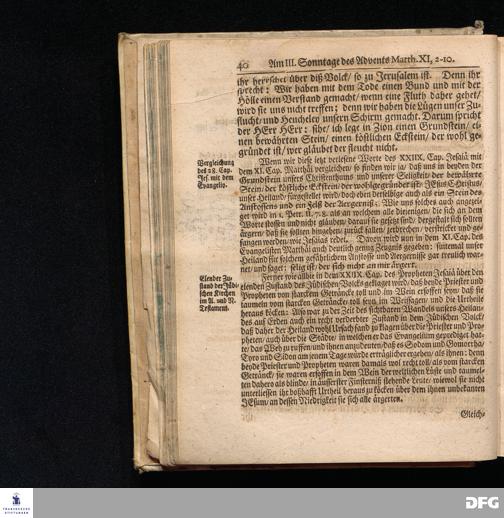 40 Am III. Sonntage des Advents Matth. XI, 2-10.
ihr herrschet über diß Volck/ so zu Jerusalem ist. Denn ihr
sprecht: Wir haben mit dem Tode einen Bund und mit der
Hölle einen Verstand gemacht/ wenn eine Fluth daher gehet/
wird sie uns nicht treffen: denn wir haben die Lügen unser Zu-
flucht/ und Heucheley unsern Schirm gemacht. Darum spricht
der HErr HErr: sihe/ ich lege in Zion einen Grundstein/ ei-
nen bewährten Stein/ einen köstlichen Eckstein/ der wohl ge-
gründet ist/ wer gläubet der fleucht nicht.
Vergleichung
des 28. Cap.
Jes. mit dem
Evangelio.
Wenn wir diese jetzt verlesene Worte des XXIIX. Cap. Jesaiä mit
dem XI. Cap. Matthäi vergleichen/ so finden wir ja/ daß uns in beyden der
Grundstein unsers Christenthums und unserer Seligkeit/ der bewährte
Stein/ der köstliche Eckstein/ der wohlgegründet ist: JEsus Christus/
unser Heiland/ fürgestellet wird/ doch eben derselbige auch als ein Stein des
Anstossens und ein Fels der Aergerniß: Wie uns solches auch angezei-
get wird in 1. Petr. II. 7. 8. als an welchem alle diejenigen/ die sich an dem
Worte stossen und nicht gläuben/ darauf sie gesetzt sind/ dergestalt sich stossen
ärgern/ daß sie sollten hingehen/ zurück fallen/ zerbrechen/ verstricket und ge-
fangen werden/ wie Jesaias redet. Davon wird nun in dem XI. Cap. des
Evangelisten Matthäi auch deutlich genug Zeugnis gegeben: sintemal unser
Heiland für solchem gefährlichem Anstosse und Aergernisse gar treulich war-
net/ und saget: selig ist/ der sich nicht an mir ärgert.
Elender Zu-
stand der Jüdi-
schen Kirchen
im A. und N.
Testament.
Ferner wie allhie in dem XXIIX. Cap. des Propheten Jesaiä über den
elenden Zustand des Jüdischen Volcks geklaget wird/ daß beyde Priester und
Propheten von starckem Geträncke toll und im Wein ersoffen seyn/ daß sie
taumeln vom starcken Geträncke/ toll seyn im Weissagen/ und die Urtheile
heraus köcken: Also war zu der Zeit des sichtbaren Wandels unsers Heilan-
des auf Erden auch ein recht verderbter Zustand in dem Jüdischen Volck/
daß daher der Heiland wohl Ursach fand zu klagen über die Priester und Pro-
pheten/ auch über die Städte/ in welchen er das Evangelium geprediget hat-
te/ das Weh zu ruffen/ und ihnen anzudeuten/ daß es Sodom und Gomorrha/
Tyro und Sidon am jenem Tage würde erträglicher ergehen/ als ihnen: denn
beyde Priester und Propheten waren damals wol recht toll/ als vom starcken
Getränck/ sie waren ersoffen in dem Wein der weltlichen Lüste und taumel-
ten dahero als blinde/ in äusserster Finsterniß stehende Leute/ wiewol sie nicht
unterliessen ihr boßhafft Urtheil heraus zu köcken über dem ihnen unbekanten
JEsum/ an dessen Niedrigkeit sie sich alle ärgerten.
Gleich-
FRANCKESCHE
STIFTUNGEN
DFG